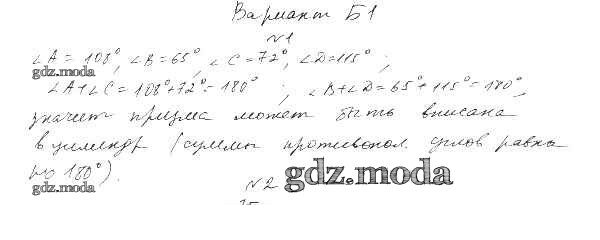 Вариант Б1
№1
∠A = 108°, ∠B = 65°, ∠C = 72°, ∠D = 115° ;
gdz.moda
∠A+∠C = 108°+72° = 180° ; ∠B+∠D = 65°+115° = 180°,
значит призма может быть вписана
в цилиндр (суммы противопол. углов равны
по 180°).
gdz.moda
№2 gdz.moda